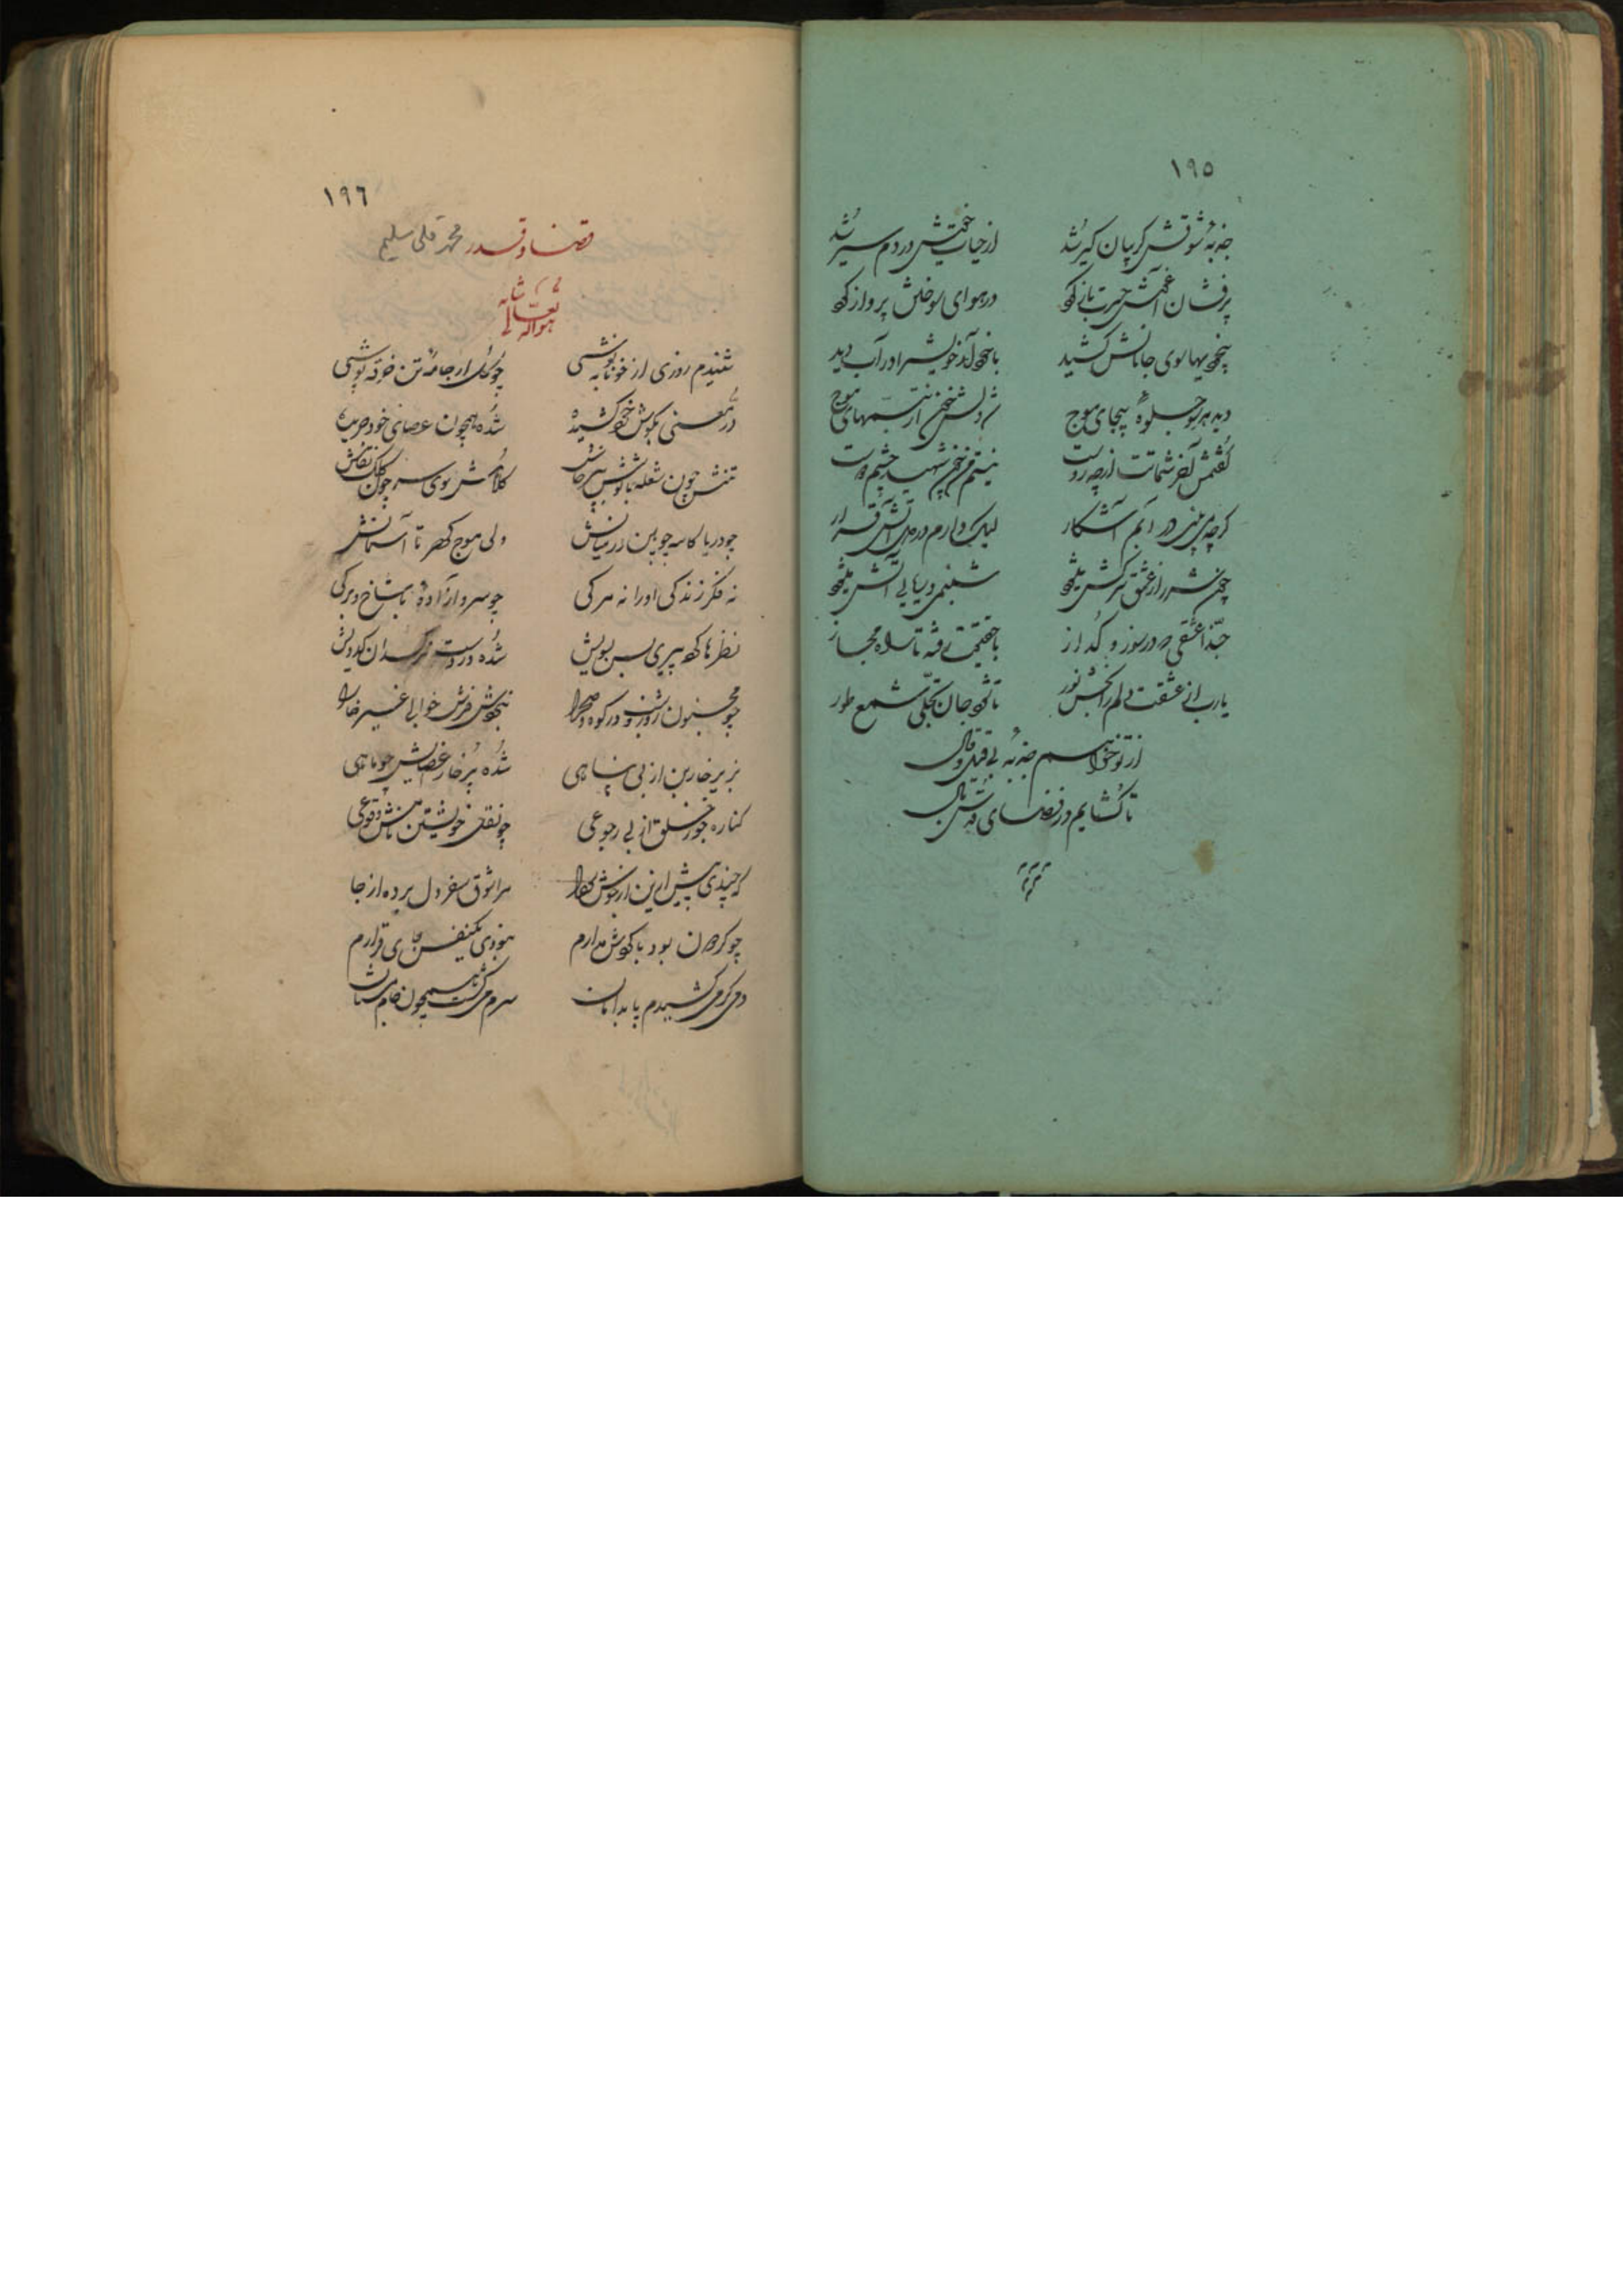 ۱۹۵
جذبهٔ شوقش گریبان گیر شد از حیات خویش در دم سیر شد
پرفشان در هوای پرواز کرد
بیخودیها سوی جانانش کشید باخود آمد خویش را در آب دید
دید هر سو جلوهٔ بیجای موج شد دلش خون از تبسمهای موج
گفتمش آخر شماتت از چه روست نیستم من خود شهید چشم دوست
گرچه می بینی در آبم آشکار لیک دارم در دل آتش قرار
چون شرر از عشق سرکش میخورد شبنمی دریایی آتش میخورد
حبّذا عشقی که در سوز و گداز با حقیقت رفته تا راه مجاز
یارب از عشقت دلم را بخش نور تا شود جان تجلّی شمع طور
از تو خواهم جذبهٔ بی قیل و قال
تا گشایم در فضای قدس بال
۱۹٦
قضا و قدر محمد قلی سلیم
هو الله تعالی شانه
شنیدم روزی از خونابه نوشی چو گل از جامهٔ تن خرقه پوشی
درّ معنی بگوش خود کشیده شده همچون عصای خود جریده
تنش چون شعله باشد کلاهش موی سر چون کلک نقاش
چو دریا کاسه چوبین در میانش ولی موج گهر تا آسمانش
نه فکر زندگی او را نه مرگی چو سرو آزاده با شاخ و برگی
نظرها کرده پیری بس بسویش شده در دست کدویش
چو مجنون روز و شب در کوه و صحرا نبودش فرش خوابی غیر خارا
بزیر خاربن از بی پناهی شده پر خار عضایش چو ماهی
کناره جو ز خلق از بی رجوعی چو نقل خویشتن
که چندی پیش ازین از جوش سودا مرا شوق سفر دل برده از جا
چو گردون بود با گردش مدارم نبودی یکنفس جای قرارم
دمی گر می کشیدم پا بدامان سرم می گشت همچون جام مستان